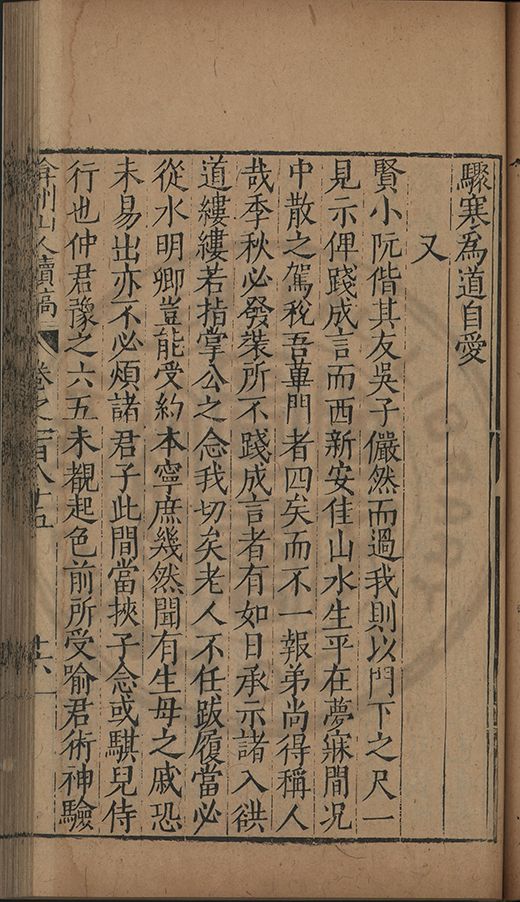 驟寒為道自愛
又
賢小阮偕其友吳子儼然而過我則以門下之尺一
見示俾踐成言而西新安佳山水生平在夢寐間况
中散之駕稅吾蓽門者四矣而不一報弟尚得稱人
哉季秋必發裝所不踐成言者有如日承示諸入歙
道縷縷若指掌公之念我切矣老人不任跋履當必
從水明卿豈能受約本寧庶幾然聞有生母之戚恐
未易出亦不必煩諸君子此間當挾子念或騏兒侍
行也仲君豫之六五未覩起色前所受喻君術神驗
弇州山人續稿
卷之一百八十五